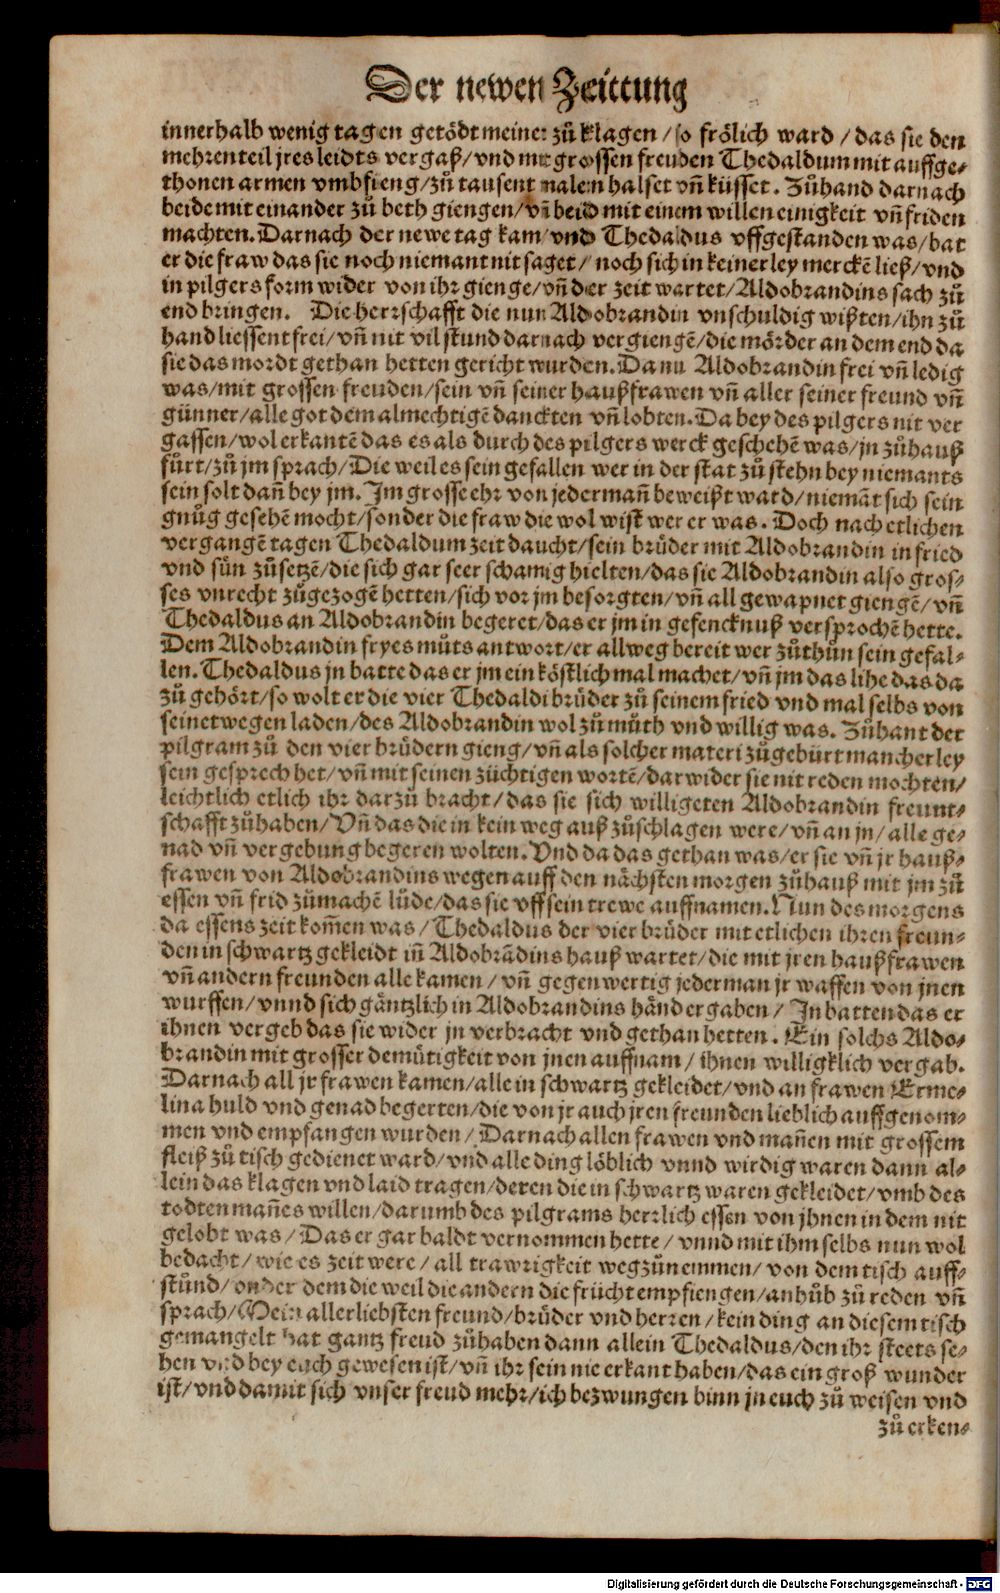 Der newen Zeittung
innerhalb wenig tagen getödt meinet zů klagen / so frölich ward / das sie den
mehrenteil jres leidts vergaß / vnd mit grossen freuden Thedaldum mit auffge⸗
thonen armen vmbfieng / zů tausent malen halset vñ küsset. Zůhand darnach
beide mit einander zů beth giengen / vñ beid mit einem willen einigkeit vñ friden
machten. Darnach der newe tag kam / vnd Thedaldus vffgestanden was / bat
er die fraw das sie noch niemant nit saget / noch sich in keinerley merckē ließ / vnd
in pilgers form wider von ihr gienge / vñ der zeit wartet / Aldobrandins sach zů
end bringen. Die herrschafft die nun Aldobrandin vnschuldig wißten / ihn zů
hand liessent frei / vñ nit vil stund darnach vergiengē / die mörder an dem end da
sie das mordt gethan hetten gericht wurden. Da nu Aldobrandin frei vñ ledig
was / mit grossen freuden / sein vñ seiner haußfrawen vñ aller seiner freund vñ
günner / alle got dem almechtigē danckten vñ lobten. Da bey des pilgers nit ver
gassen / wol erkantē das es als durch des pilgers werck geschehē was / jn zůhauß
fůrt / zů jm sprach / Die weil es sein gefallen wer in der stat zů stehn bey niemants
sein solt dañ bey jm. Im grosse ehr von jedermañ beweißt ward / niemāt sich sein
gnůg gesehē mocht / sonder die fraw die wol wist wer er was. Doch nach etlichen
vergangē tagen Thedaldum zeit daucht / sein brüder mit Aldobrandin in fried
vnd sůn zůsetzē / die sich gar seer schamig hielten / das sie Aldobrandin also gros⸗
ses vnrecht zůgezogē hetten / sich vor jm besorgten / vñ all gewapnet giengē / vñ
Thedaldus an Aldobrandin begeret / das er jm in gefencknuß versprochē hette.
Dem Aldobrandin fryes můts antwort / er allweg bereit wer zůthůn sein gefal⸗
len. Thedaldus jn batte das er jm ein köstlich mal machet / vñ jm das lihe das da
zů gehört / so wolt er die vier Thedaldi brüder zů seinem fried vnd mal selbs von
seinetwegen laden / des Aldobrandin wol zů můth vnd willig was. Zůhant der
pilgram zů den vier brüdern gieng / vñ als solcher materi zůgebürt mancherley
sein gesprech het / vñ mit seinen züchtigen wortē / darwider sie nit reden mochten /
leichtlich etlich ihr darzů bracht / das sie sich willigeten Aldobrandin freunt⸗
schafft zůhaben / Vñ das die in kein weg auß zůschlagen were / vñ an jn / alle ge⸗
nad vñ vergebung begeren wolten. Vnd da das gethan was / er sie vñ jr hauß⸗
frawen von Aldobrandins wegen auff den nächsten morgen zůhauß mit jm zů
essen vñ frid zůmachē lůde / das sie vff sein trewe auffnamen. Nun des morgens
da essens zeit kom̃en was / Thedaldus der vier brüder mit etlichen ihren freun⸗
den in schwartz gekleidt im̃ Aldobrādins hauß wartet / die mit jren haußfrawen
vñ andern freunden alle kamen / vñ gegenwertig jederman jr waffen von jnen
wurffen / vnnd sich gäntzlich in Aldobrandins händ ergaben / In batten das er
ihnen vergeb das sie wider jn verbracht vnd gethan hetten. Ein solchs Aldo⸗
brandin mit grosser demütigkeit von jnen auffnam / ihnen willigklich vergab.
Darnach all jr frawen kamen / alle in schwartz gekleidet / vnd an frawen Erme⸗
lina huld vnd genad begerten / die von jr auch jren freunden lieblich auffgenom⸗
men vnd empfangen wurden / Darnach allen frawen vnd mañen mit grossem
fleiß zů tisch gedienet ward / vnd alle ding löblich vnnd wirdig waren dann al⸗
lein das klagen vnd laid tragen / deren die in schwartz waren gekleidet / vmb des
todten mañes willen / darumb des pilgrams herrlich essen von jhnen in dem nit
gelobt was / Das er gar baldt vernommen hette / vnnd mit ihm selbs nun wol
bedacht / wie es zeit were / all trawrigkeit wegzůnemmen / von dem tisch auff⸗
stůnd / onder dem die weil die andern die frücht empfiengen / anhůb zů reden vñ
sprach / Mein allerliebsten freund / brüder vnd herren / kein ding an diesem tisch
gemangelt hat gantz freud zůhaben dann allein Thedaldus / den ihr steets se⸗
hen vnd bey euch gewesen ist / vñ ihr sein nie erkant haben / das ein groß wunder
ist / vnd damit sich vnser freud mehr / ich bezwungen binn jn euch zů weisen vnd
zů erken⸗
Digitalisierung gefördert durch die Deutsche Forschungsgemeinschaft - DFG